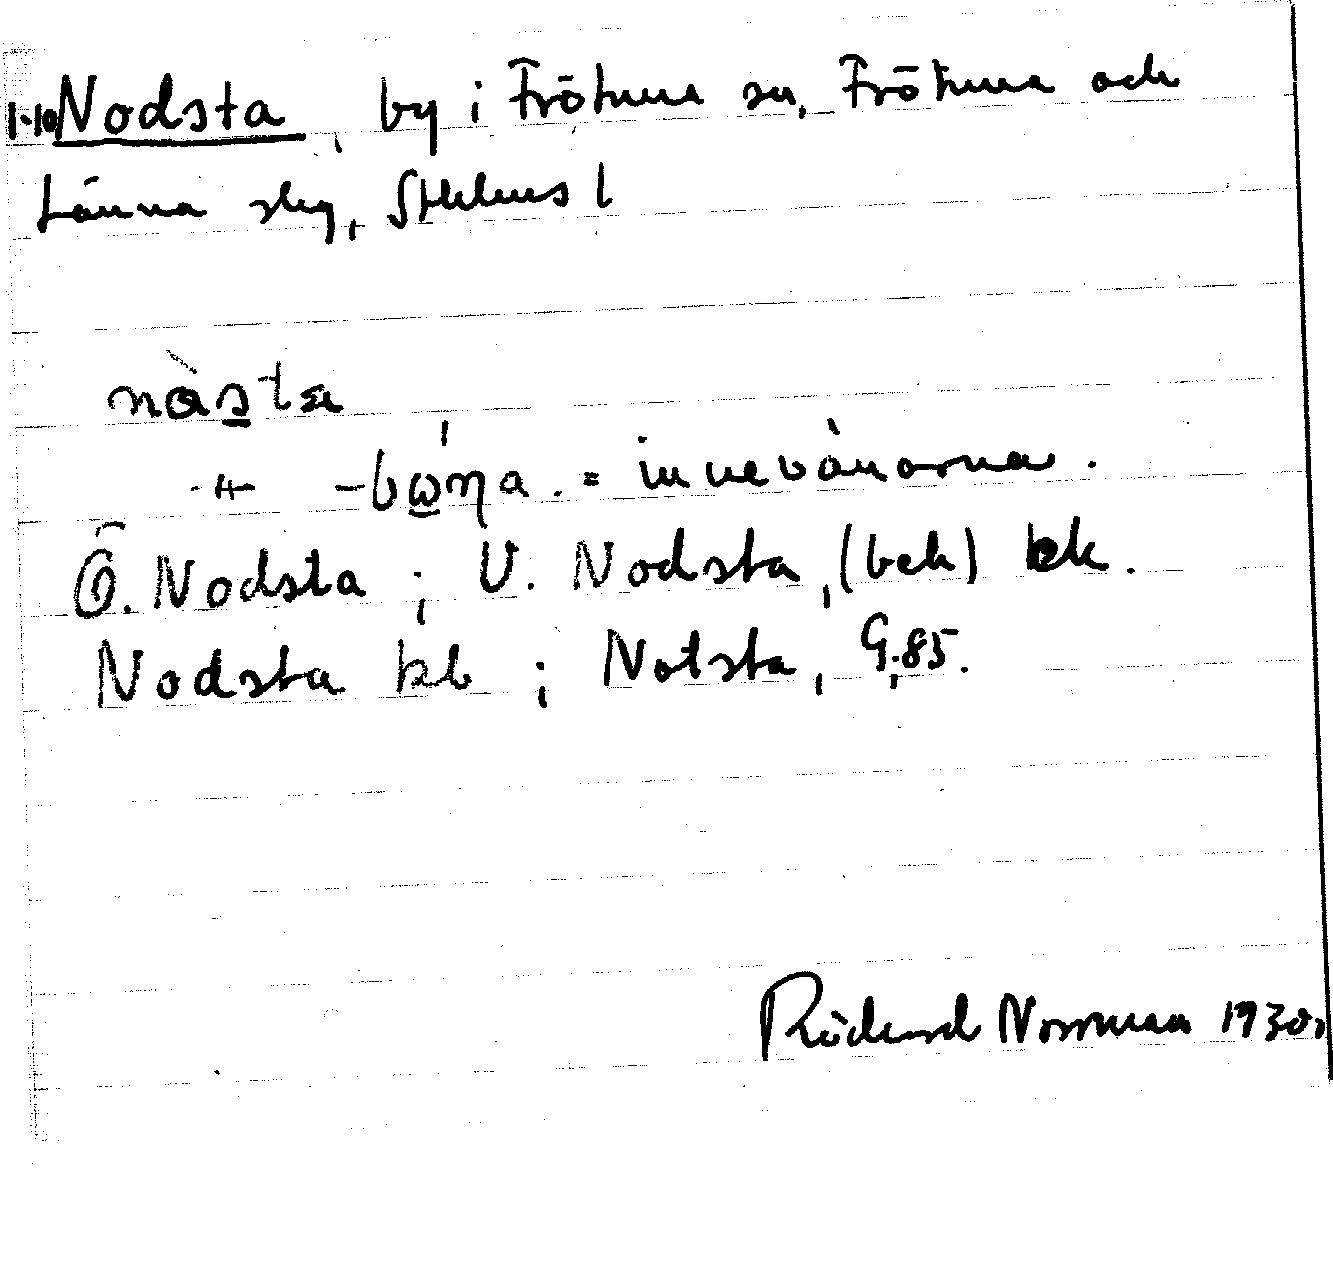 1-10 Nodsta, by i Frötuna sn, Frötuna och
Länna skg, Sthlms l
nàsta
-"- -bώ̲ŋa. = innevånarna.
Ö. Nodsta; V. Nodsta, (bek) ek.
Nodsta kb; Notsta, G.85.
Rödlund Norrman 1930.